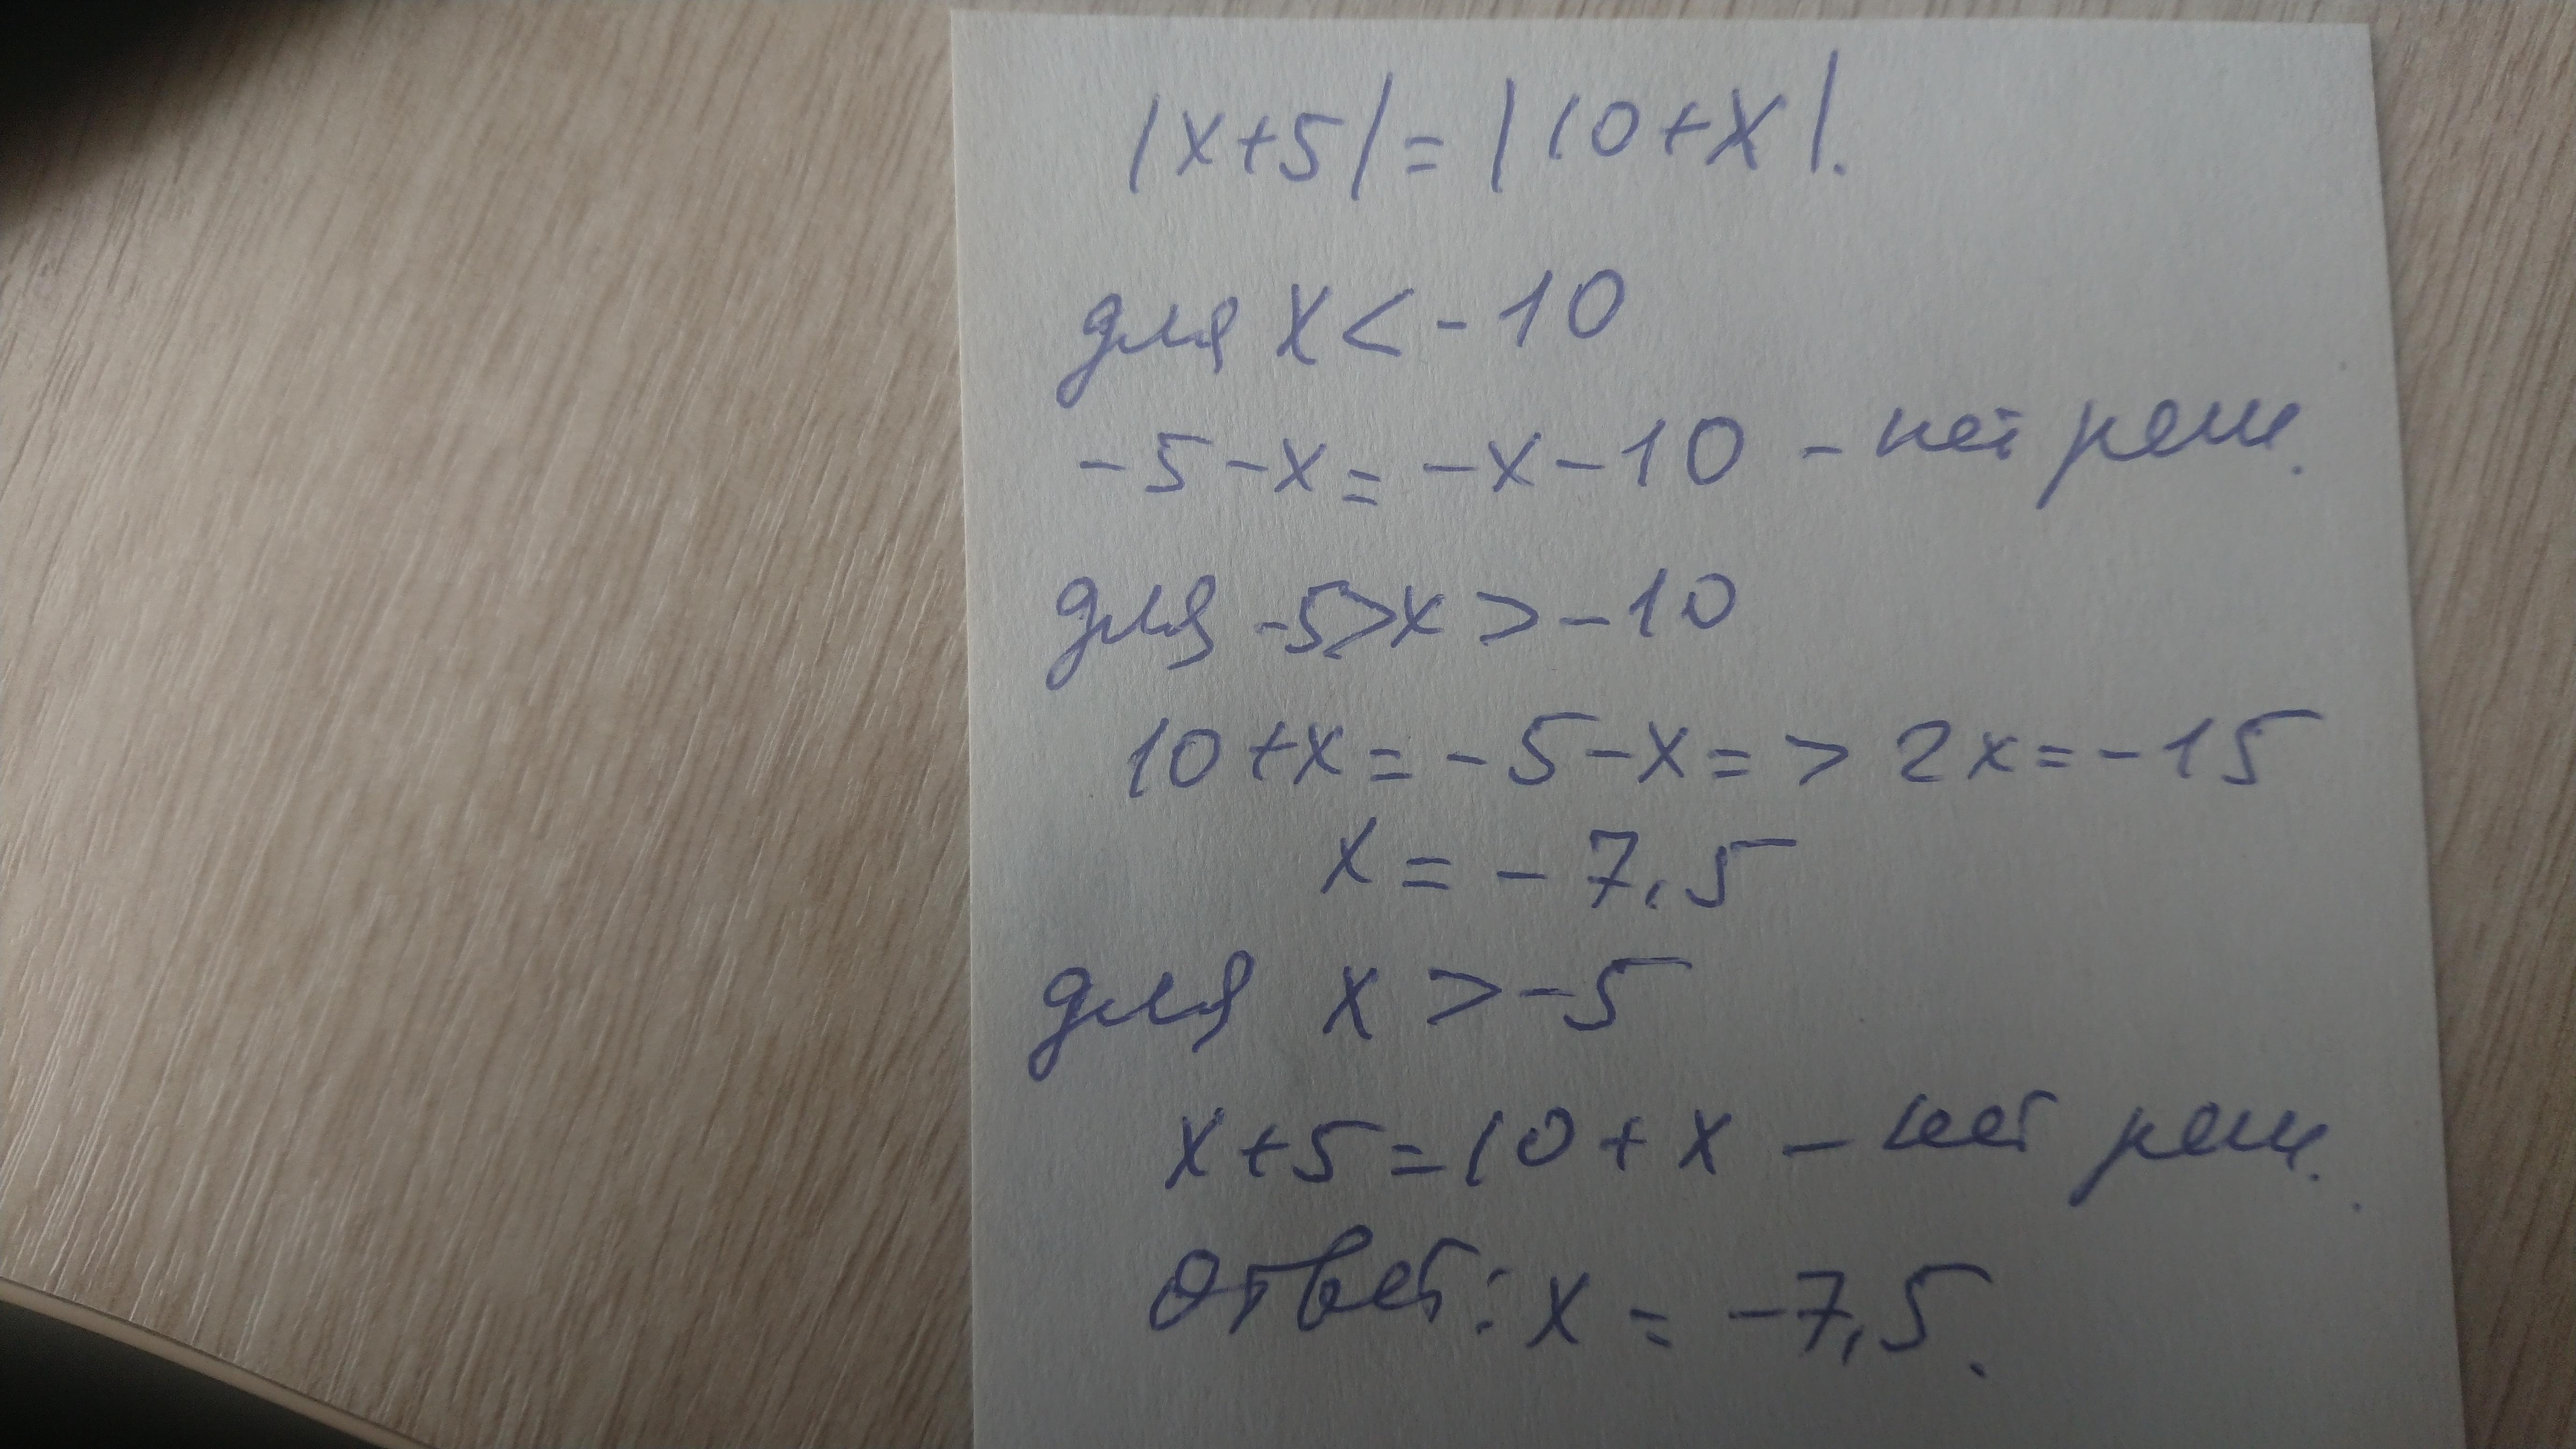 |x+5|=|10+x|.
для x<-10
-5-x=-x-10 - нет реш.
для -5>x>-10
10+x=-5-x=> 2x=-15
x=-7,5
для x>-5
x+5=10+x - нет реш.
Ответ: x=-7,5.